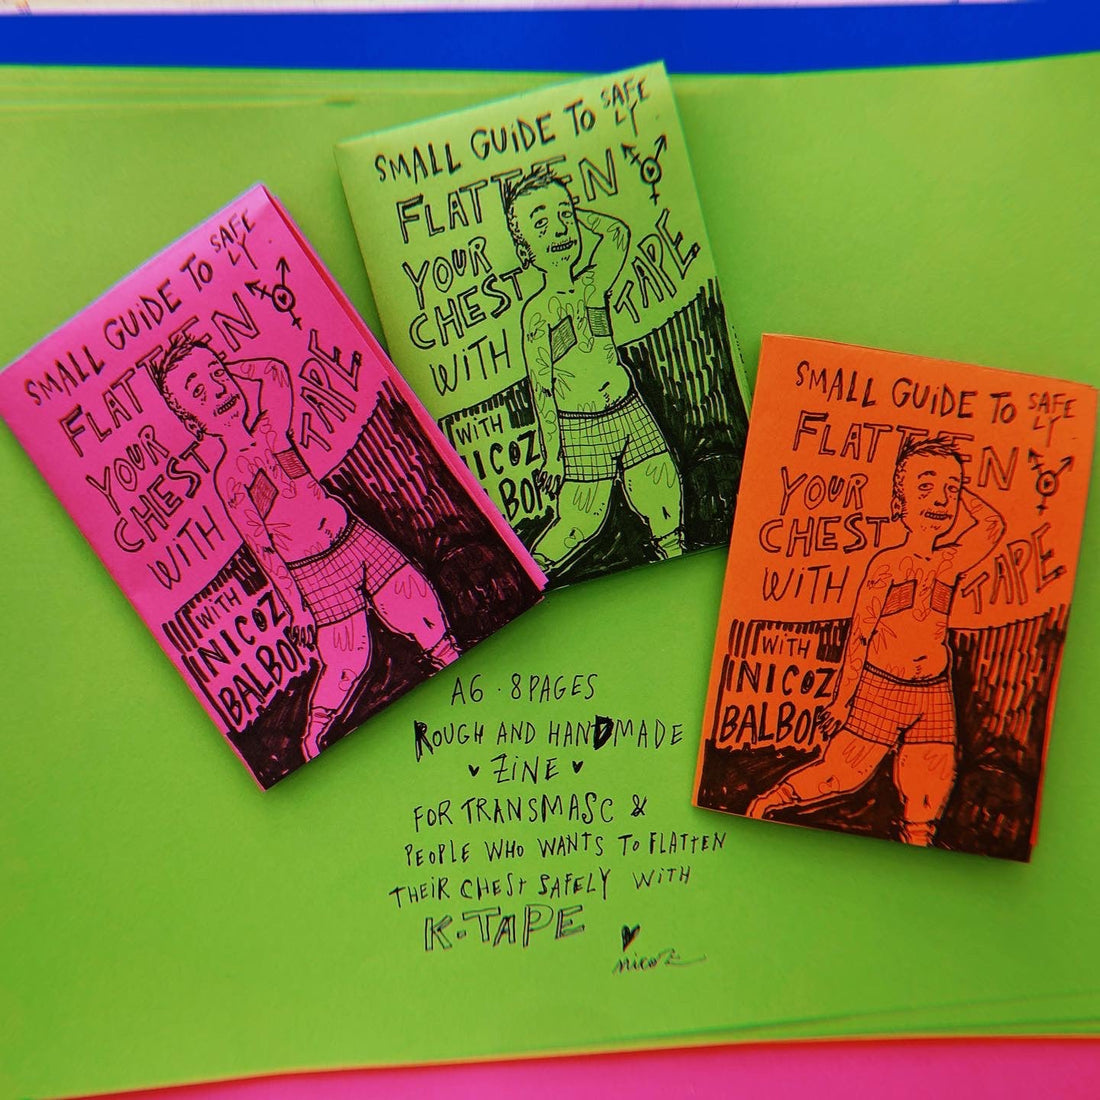 SMALL GUIDE TO SAFE
LY
FLATTEN
YOUR
CHEST
WITH
TAPE
WITH
NICOZ
BALBO
SMALL GUIDE TO SAFE
LY
FLATTEN
YOUR
CHEST
WITH
TAPE
WITH
NICOZ
BALBO
SMALL GUIDE TO SAFE
LY
FLATTEN
YOUR
CHEST
WITH
TAPE
WITH
NICOZ
BALBO
A6 · 8 PAGES
ROUGH AND HANDMADE
♥ ZINE ♥
FOR TRANSMASC &
PEOPLE WHO WANTS TO FLATTEN
THEIR CHEST SAFELY WITH
K-TAPE
nicoz